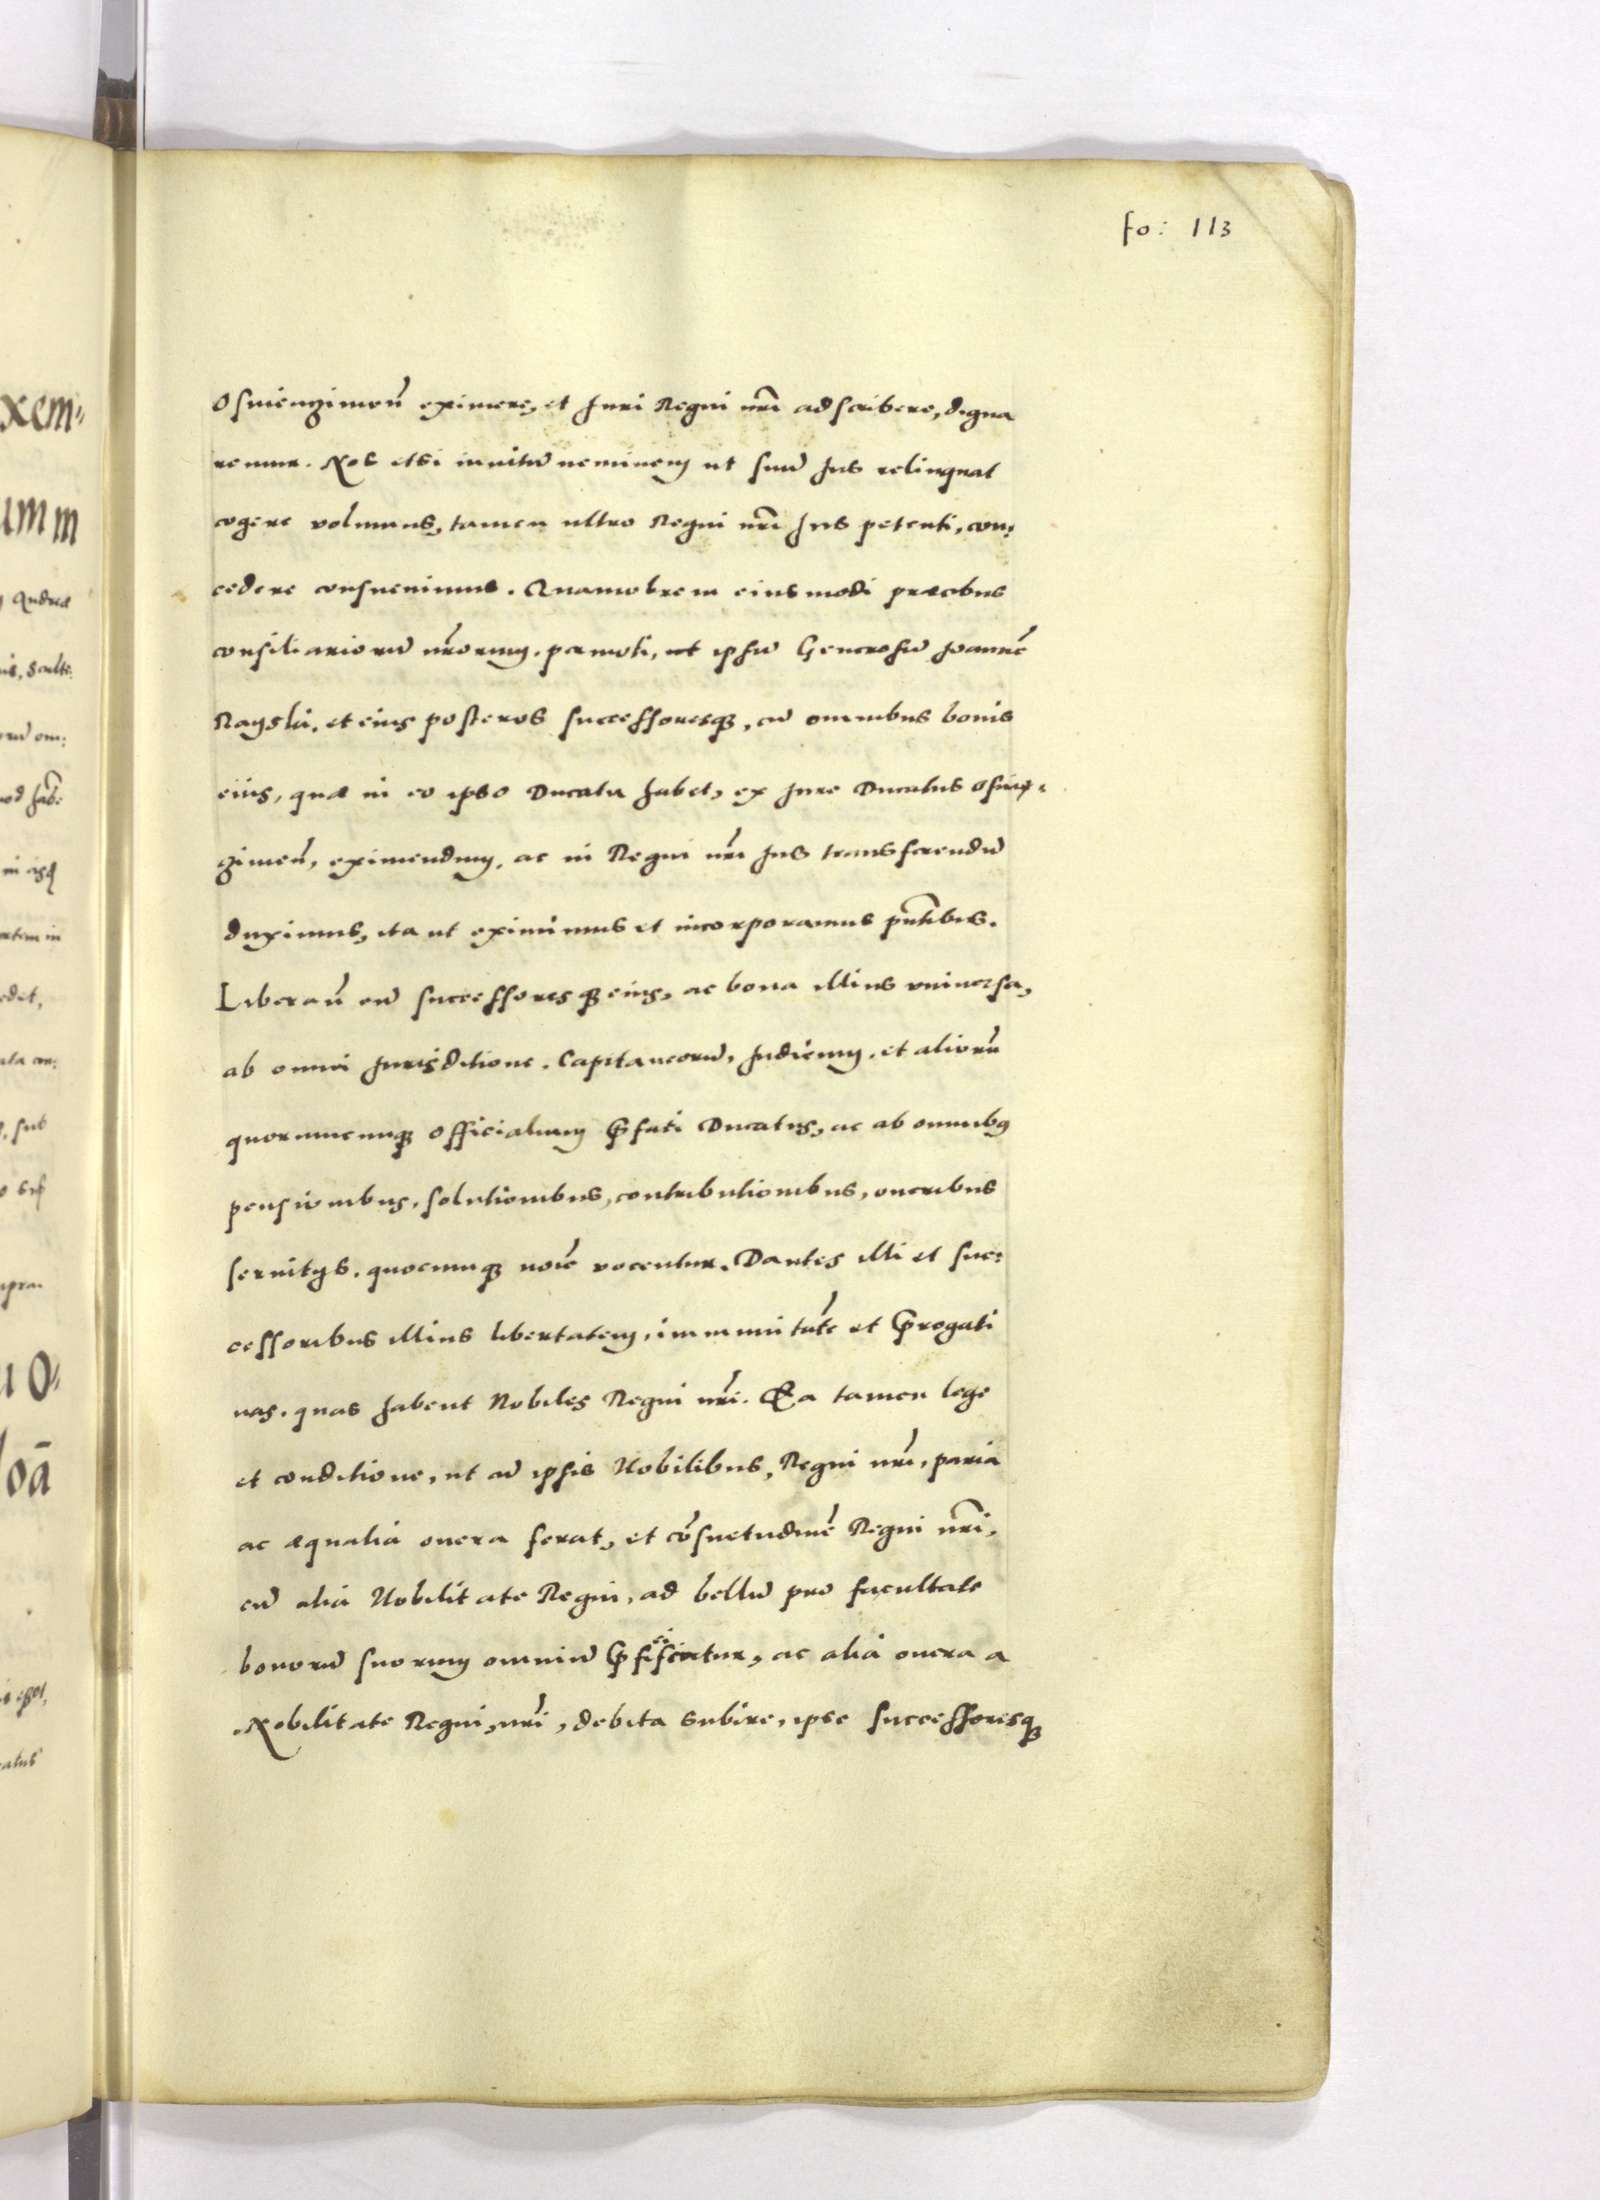 fo: 113
Osuienzimen̄ eximere, et Juri Regni nr̄i adscribere, digna
remur. Nos etsi inuitū neminem ut suū Jus relinquat
cogere volumus, tamen ultro Regni nr̄i Jus petenti, con:
cedere consueuimus. Quamobrem eiusmodi præcibus
consiliariorū nr̄orum. permoti, ut ipsū Generosū Joannē
Rayski, et eius posteros successoresq3, cū omnibus bonis
eius, quæ in eo ipso Ducatu habet, ex Jure Ducatus Osuię:
zimen̄, eximendum, ac in Regni nr̄i Jus transferendū
duximus, ita ut eximimus et incorporamus pn̄tibus.
Liberan̄ eū successoresq3 eius, ac bona illius vniuersa,
ab omni Jurisditione. Capitaneorū, Judicum. et aliorū
quorumcunq3 officialium p̄fati Ducatus, ac ab omnibus
pensionibus, solutionibus, contributionibus, oneribus
seruitys. quocunq3 noīe vocentur. Dantes illi et suc:
cessoribus illius libertatem, immunitātē et p̄rogati
uas. quas habent Nobiles Regni nr̄i. Ea tamen lege
et conditione, ut cū ipsis Nobilibus, Regni nr̄i, paria
ac æqualia onera ferat, et cōsuetudinē Regni nr̄i,
cū alia Nobilitate Regni, ad bellū pro facultate
bonorū suorum omniū p̄ficiscatur, ac alia onera a
Nobilitate Regni, nr̄i, debita subire, ipse successoresq3